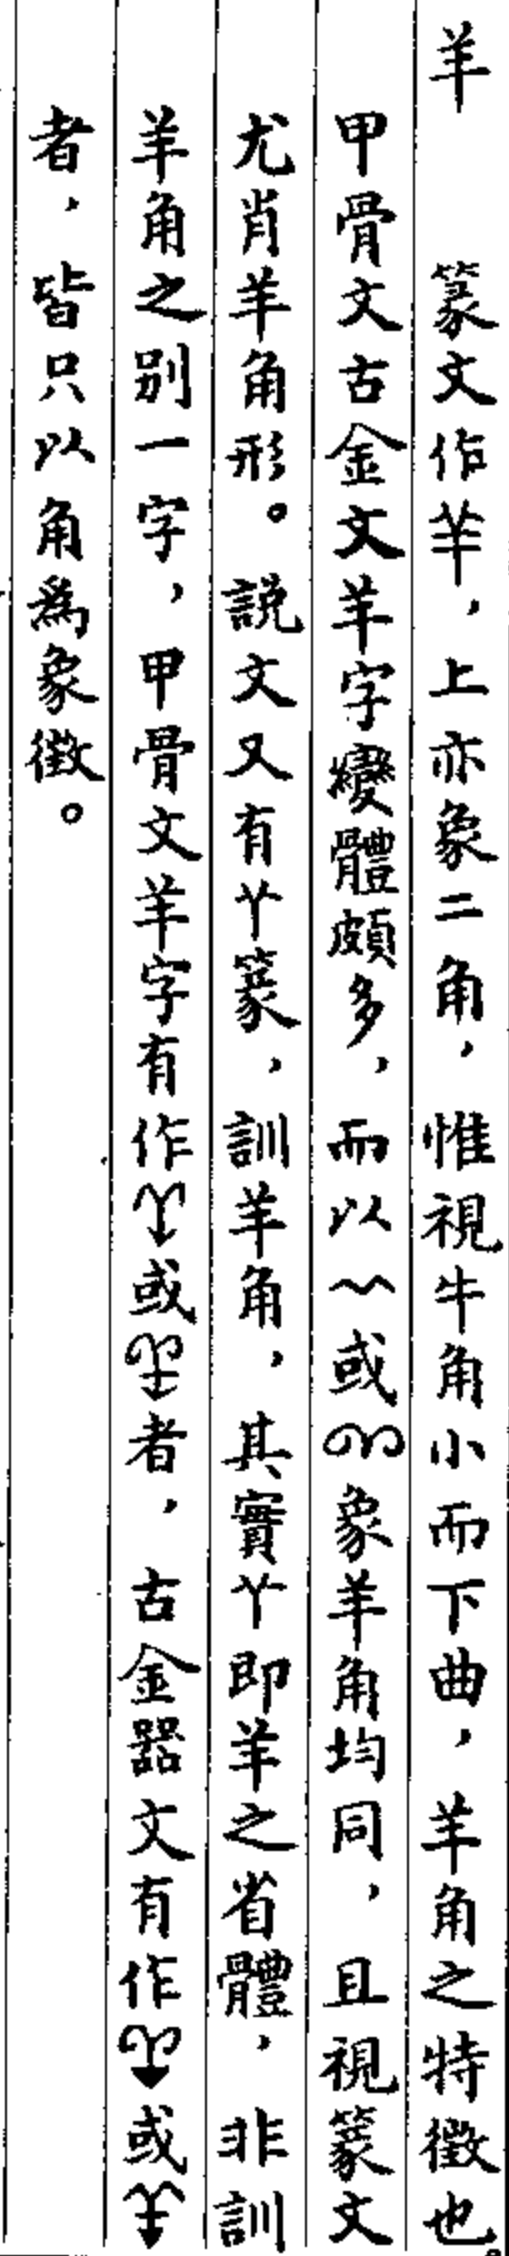 羊　篆文作羊，上亦象二角，惟視牛角小而下曲，羊角之特徵也。
甲骨文古金文羊字變體頗多，而以或象羊角均同，且視篆文
尤肖羊角形。說文又有𦫳篆，訓羊角，其實𦫳即羊之省體，非訓
羊角之別一字，甲骨文羊字有作或者，古金器文有作或
者，皆只以角為象徵。